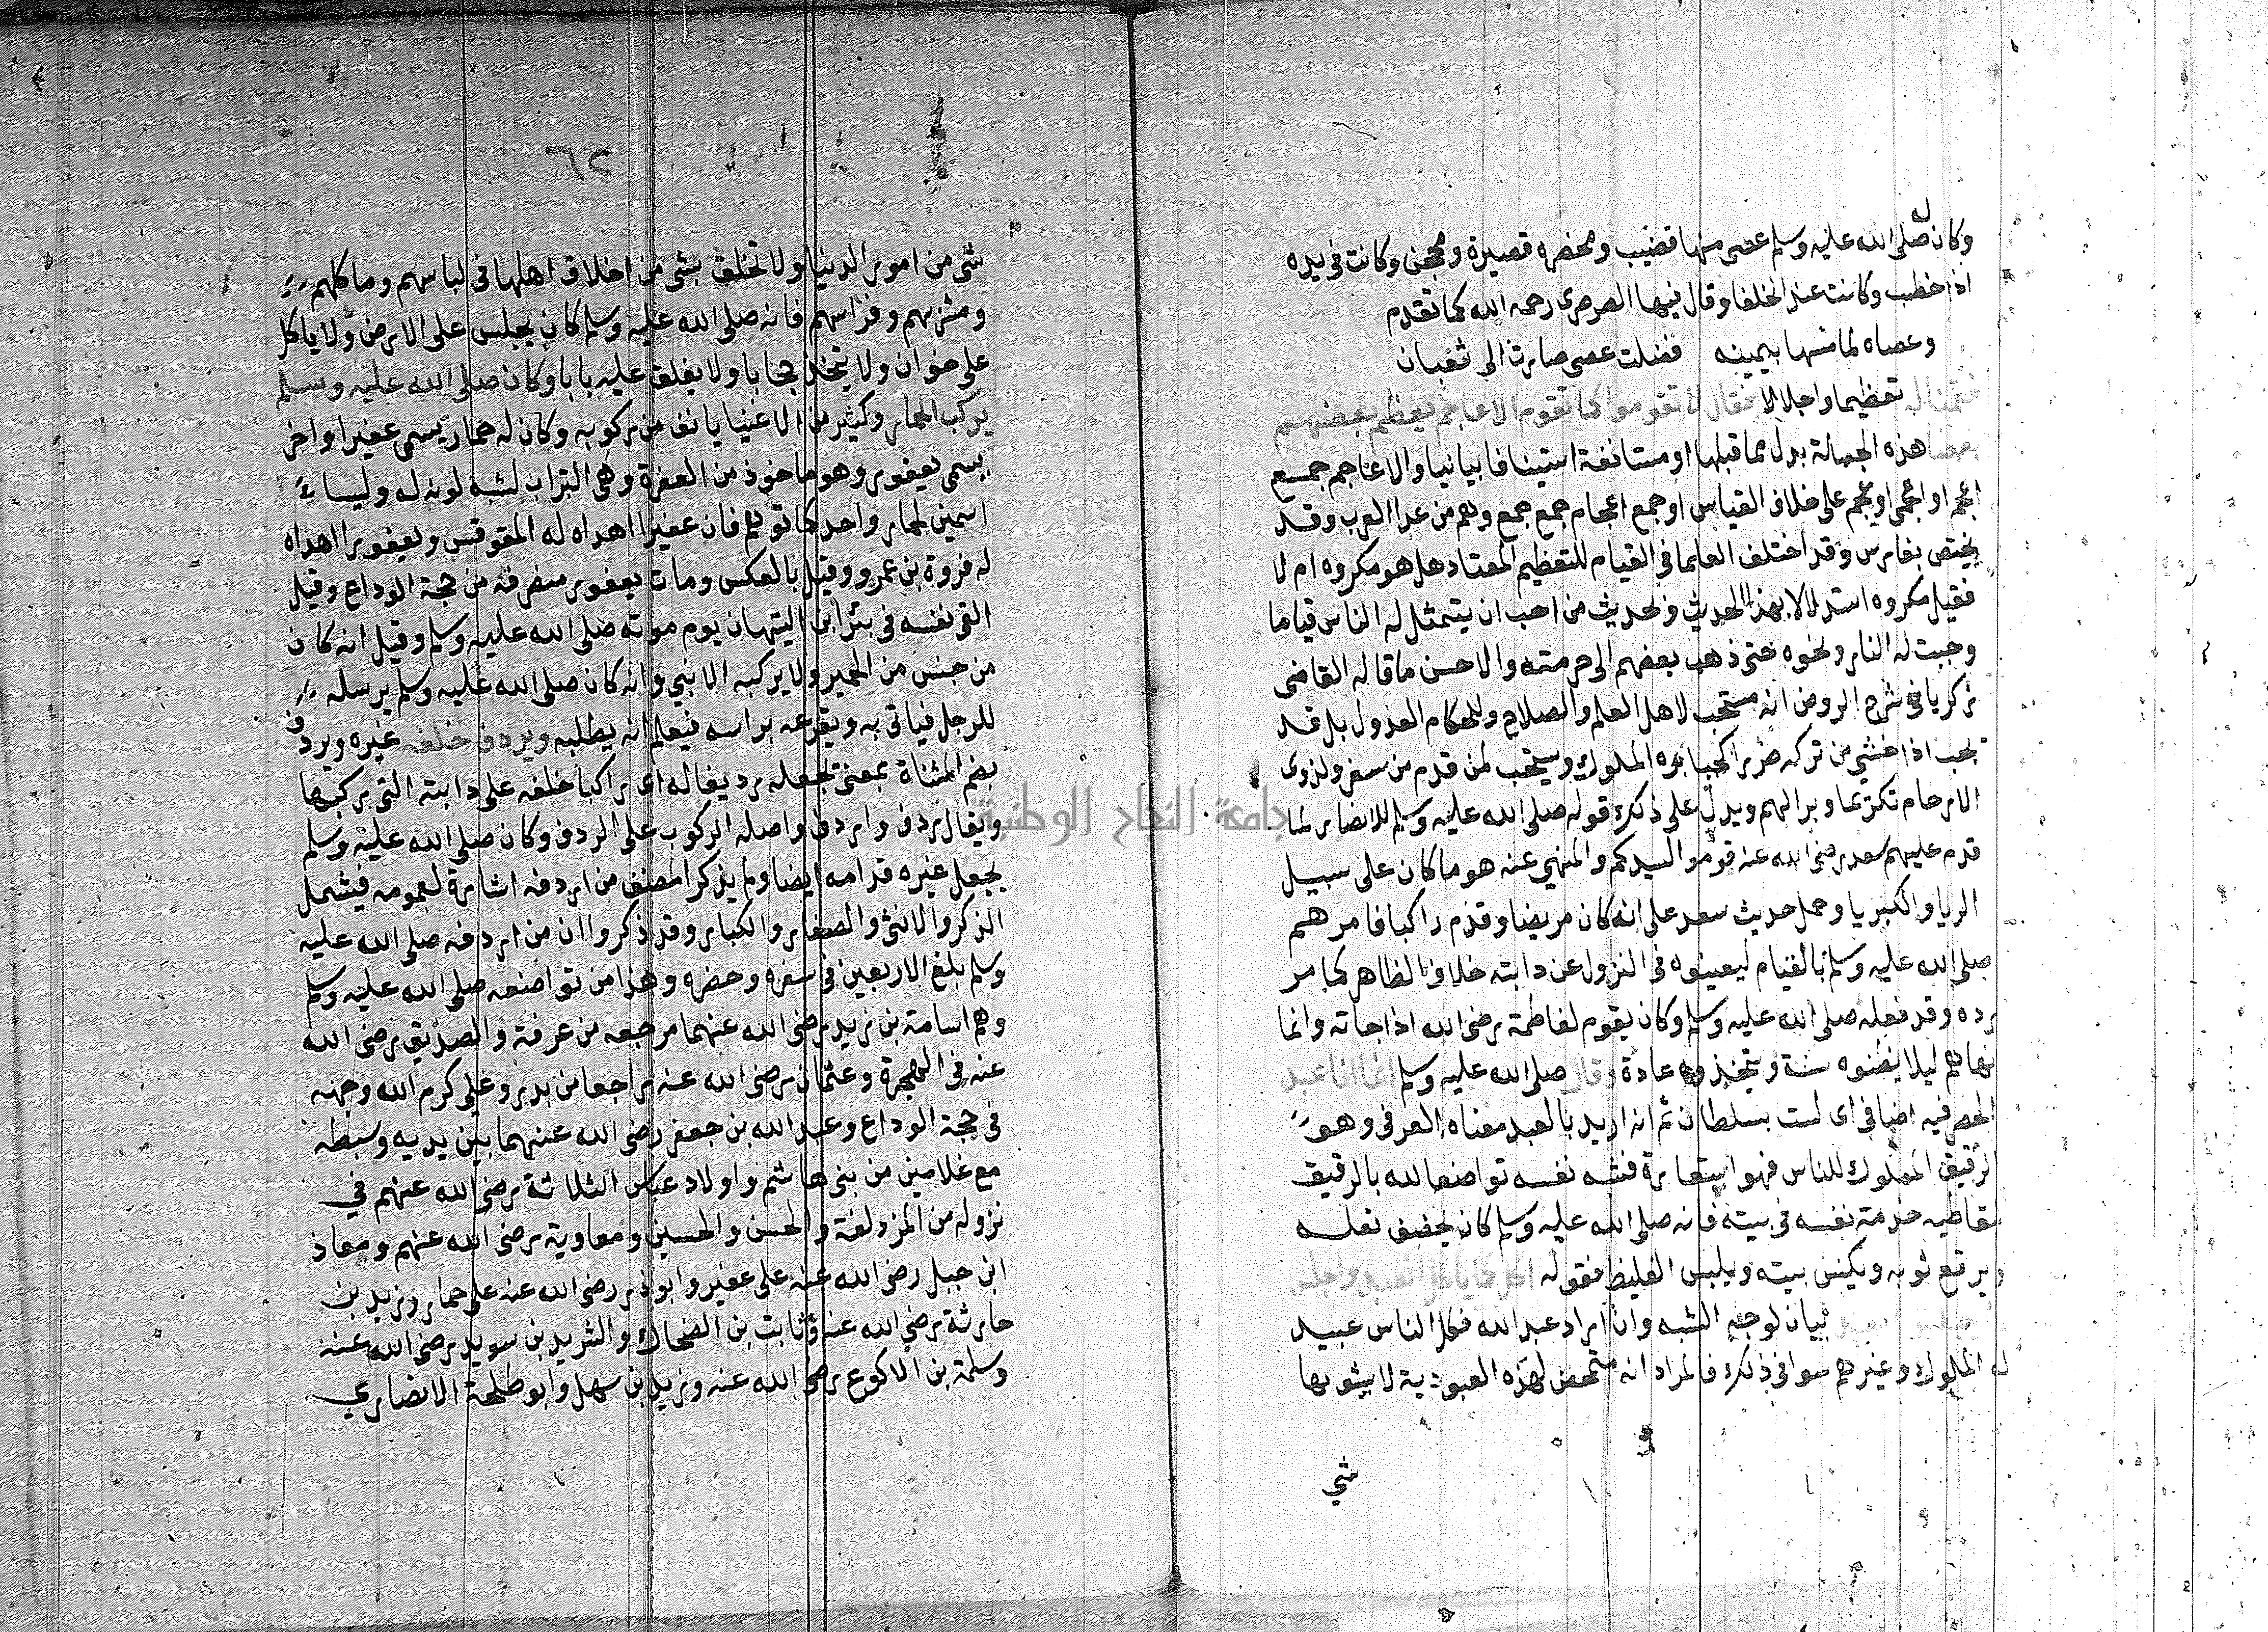 وكان له صلى الله عليه وسلم عصى منها قضيب ومخصره قصيرة ومحجن وكانت في يده
اذا خطب وكانت عند الخلفا وقال فيها الصرصرى رحمه الله كما تقدم
وعصاه لما مسها بيمينه فضلت عصى صارت الى ثعبان
فقمنا له تعظيما واجلالا فقال لا تقوموا كما تقوم الاعاجم يعظم بعضهم
بعضا هذه الجملة بدل مما قبلها او مستانفة استينافا بيانيا والاعاجم جمع
اعجم او اعجمى او عجم على خلاف القياس او جمع اعجام جمع جمع وهم من عدا العرب وقد
يختص بفارس وقد اختلف العلما في القيام للتعظيم المعتاد هل هو مكروه ام لا
فقيل مكروه استدلالا بهذا الحديث وحديث من احب ان يتمثل له الناس قياما
وجبت له النار ونحوه حتى ذهب بعضهم الى حرمته والاحسن ما قاله القاضى
زكريا في شرح الروض انه مستحب لاهل العلم والصلاح وللحكام العدول بل قد
يجب اذا خشي من تركه ضررا كجبابرة الملوك ويستحب لمن قدم من سفر ولذوى
الارحام تكريما وبرا لهم ويدل على ذلك قوله صلى الله عليه وسلم للانصار لما
قدم عليهم سعد رضى الله عنه قوموا لسيدكم والمنهي عنه هو ما كان على سبيل
الريا والكبريا وحمل حديث سعد على انه كان مريضا وقدم راكبا فامرهم
صلى الله عليه وسلم بالقيام ليعينوه في النزول عن دابته خلاف الظاهر كما مر
رده وقد فعله صلى الله عليه وسلم وكان يقوم لفاطمة رضى الله اذا جاته وانما
نهاهم ليلا يظنوه سنة ويتخذوه عادة وقال صلى الله عليه وسلم انما انا عبد
الحصر فيه اضافى اى لست بسلطان ثم انه اريد بالعبد معناه العرفى وهو
الرقيق المملوك للناس فهو استعارة فشبه نفسه تواضعا لله بالرقيق
لتعاطيه خدمة نفسه في بيته فانه صلى الله عليه وسلم كان يخصف نعله
ويرقع ثوبه ويكنس بيته ويلبس الغليظ فقوله اكل كما ياكل العبد واجلس
بيان لوجه الشبه وان اراد عبد الله فكل الناس عبيد
له الملوك وغيرهم سوا في ذلك فالمراد انه متمحض لهذه العبودية لا يشوبها
شي
٦٢
شى من امور الدنيا ولا تخلق بشى من اخلاق اهلها فى لباسهم وماكلهم
ومشربهم وفراشهم فانه صلى الله عليه وسلم كان يجلس على الارض ولا ياكل
على خوان ولا يتخذ حجابا ولا يغلق عليه بابا وكان صلى الله عليه وسلم
يركب الحمار وكثير من الاغنيا يانف من ركوبه وكان له حمار يسمى عفيرا واخر
يسمى يعفور وهو ماخوذ من العفرة وهى التراب لشبه لونه له وليسا
اسمين لحمار واحد كما توهم فان عفيرا اهداه له المقوقس ويعفورا اهداه
له فروة بن عمرو وقيل بالعكس ومات يعفور منصرفه من حجة الوداع وقيل
القى نفسه في بئر ابن التيهان يوم موته صلى الله عليه وسلم وقيل انه كان
من جنس من الحمير ولا يركبه الا نبي وانه كان صلى الله عليه وسلم يرسله
للرجل فياتى به ويقرعه براسه فيعلم انه يطلبه ويردف خلفه غيره ويردف
بضم المثناة بمعنى يجعله رديفا له اى راكبا خلفه على دابته التى يركبها
ويقال ردف واردف واصله الركوب على الردف وكان صلى الله عليه وسلم
يجعل غيره قدامه ايضا ولم يذكر المصنف من اردفه اشارة لعمومه فيشمل
الذكر والانثى والصغار والكبار وقد ذكروا ان من اردفه صلى الله عليه
وسلم بلغ الاربعين في سفره وحضره وهذا من تواضعه صلى الله عليه وسلم
وهم اسامة بن زيد رضى الله عنهما مرجعه من عرفة والصديق رضى الله
عنه فى الهجرة وعثمان رضى الله عنه راجعا من بدر وعلي كرم الله وجهه
فى حجة الوداع وعبد الله بن جعفر رضى الله عنهما بين يديه وسبطه
مع غلامين من بنى هاشم واولاد عباس الثلاثة رضى الله عنهم في
نزوله من المزدلفة والحسن والحسين ومعاوية رضى الله عنهم ومعاذ
ابن جبل رضى الله عنه على عفير وابو ذر رضى الله عنه على حمار وزيد بن
حارثة رضى الله عنه وثابت بن الضحاك والشريد بن سويد رضى الله عنه
وسلمة بن الاكوع رضى الله عنه وزيد بن سهل وابو طلحة الانصاري
جامعة النجاح الوطنية